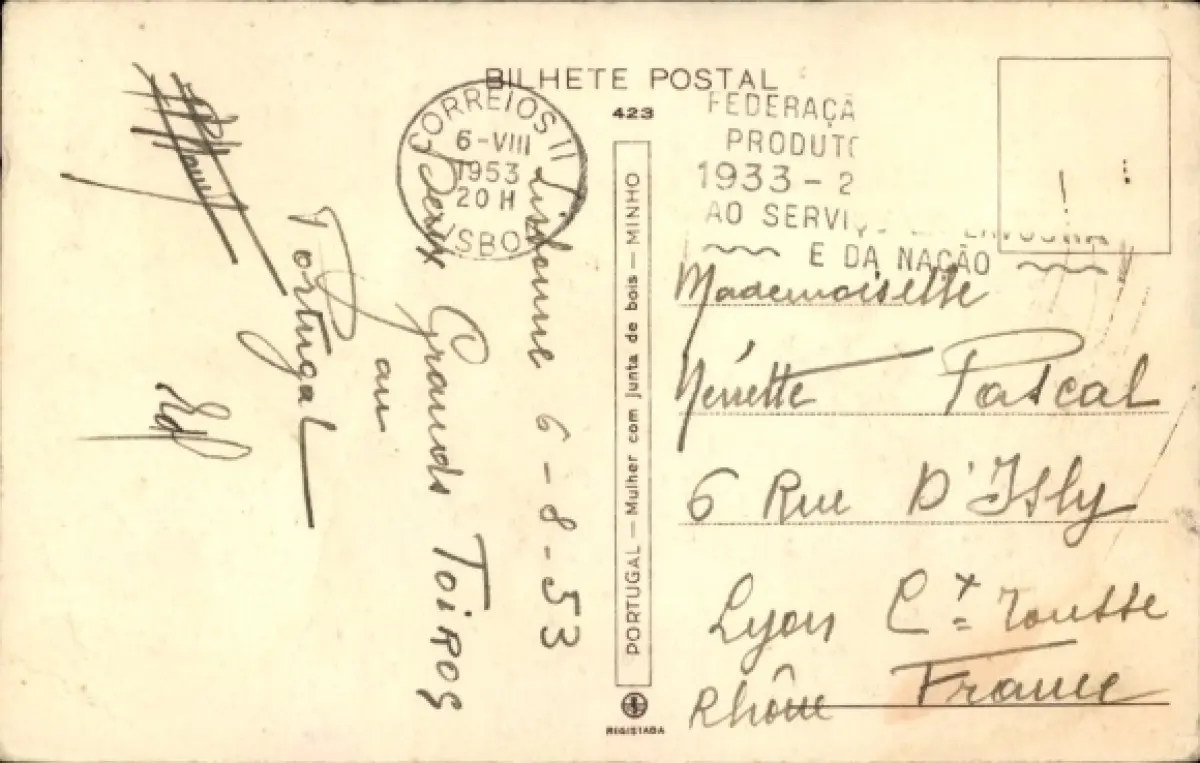 BILHETE POSTAL
423
CORREIOS II
6-VIII
1953
20 H
LISBOA
FEDERAÇÃ
PRODUTO
1933 - 2
AO SERVI
E DA NAÇÃO
Lisbonne 6-8-53
Deux Grands Toiros
au
Portugal
PORTUGAL — Mulher com junta de bois — MINHO
REGISTADA
Mademoiselle
Nénette Pascal
6 Rue D'Isly
Lyon C.x Rousse
Rhône France